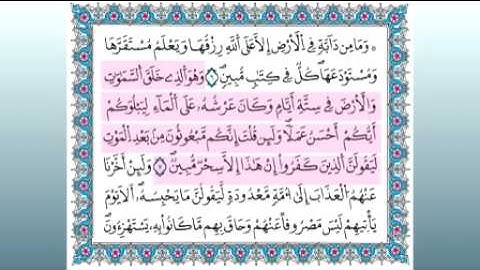 ۞ وَمَا مِن دَآبَّةٍ فِي الْأَرْضِ إِلَّا عَلَى اللَّهِ رِزْقُهَا وَيَعْلَمُ مُسْتَقَرَّهَا
وَمُسْتَوْدَعَهَا كُلٌّ فِي كِتَٰبٍ مُّبِينٍ ۝٦ وَهُوَ الَّذِي خَلَقَ السَّمَٰوَٰتِ
وَالْأَرْضَ فِي سِتَّةِ أَيَّامٍ وَكَانَ عَرْشُهُۥ عَلَى الْمَآءِ لِيَبْلُوَكُمْ
أَيُّكُمْ أَحْسَنُ عَمَلًا وَلَئِن قُلْتَ إِنَّكُم مَّبْعُوثُونَ مِنۢ بَعْدِ الْمَوْتِ
لَيَقُولَنَّ الَّذِينَ كَفَرُوٓا۟ إِنْ هَٰذَآ إِلَّا سِحْرٌ مُّبِينٌ ۝٧ وَلَئِنْ أَخَّرْنَا
عَنْهُمُ الْعَذَابَ إِلَىٰٓ أُمَّةٍ مَّعْدُودَةٍ لَّيَقُولُنَّ مَا يَحْبِسُهُۥٓ أَلَا يَوْمَ
يَأْتِيهِمْ لَيْسَ مَصْرُوفًا عَنْهُمْ وَحَاقَ بِهِم مَّا كَانُوا۟ بِهِۦ يَسْتَهْزِءُونَ